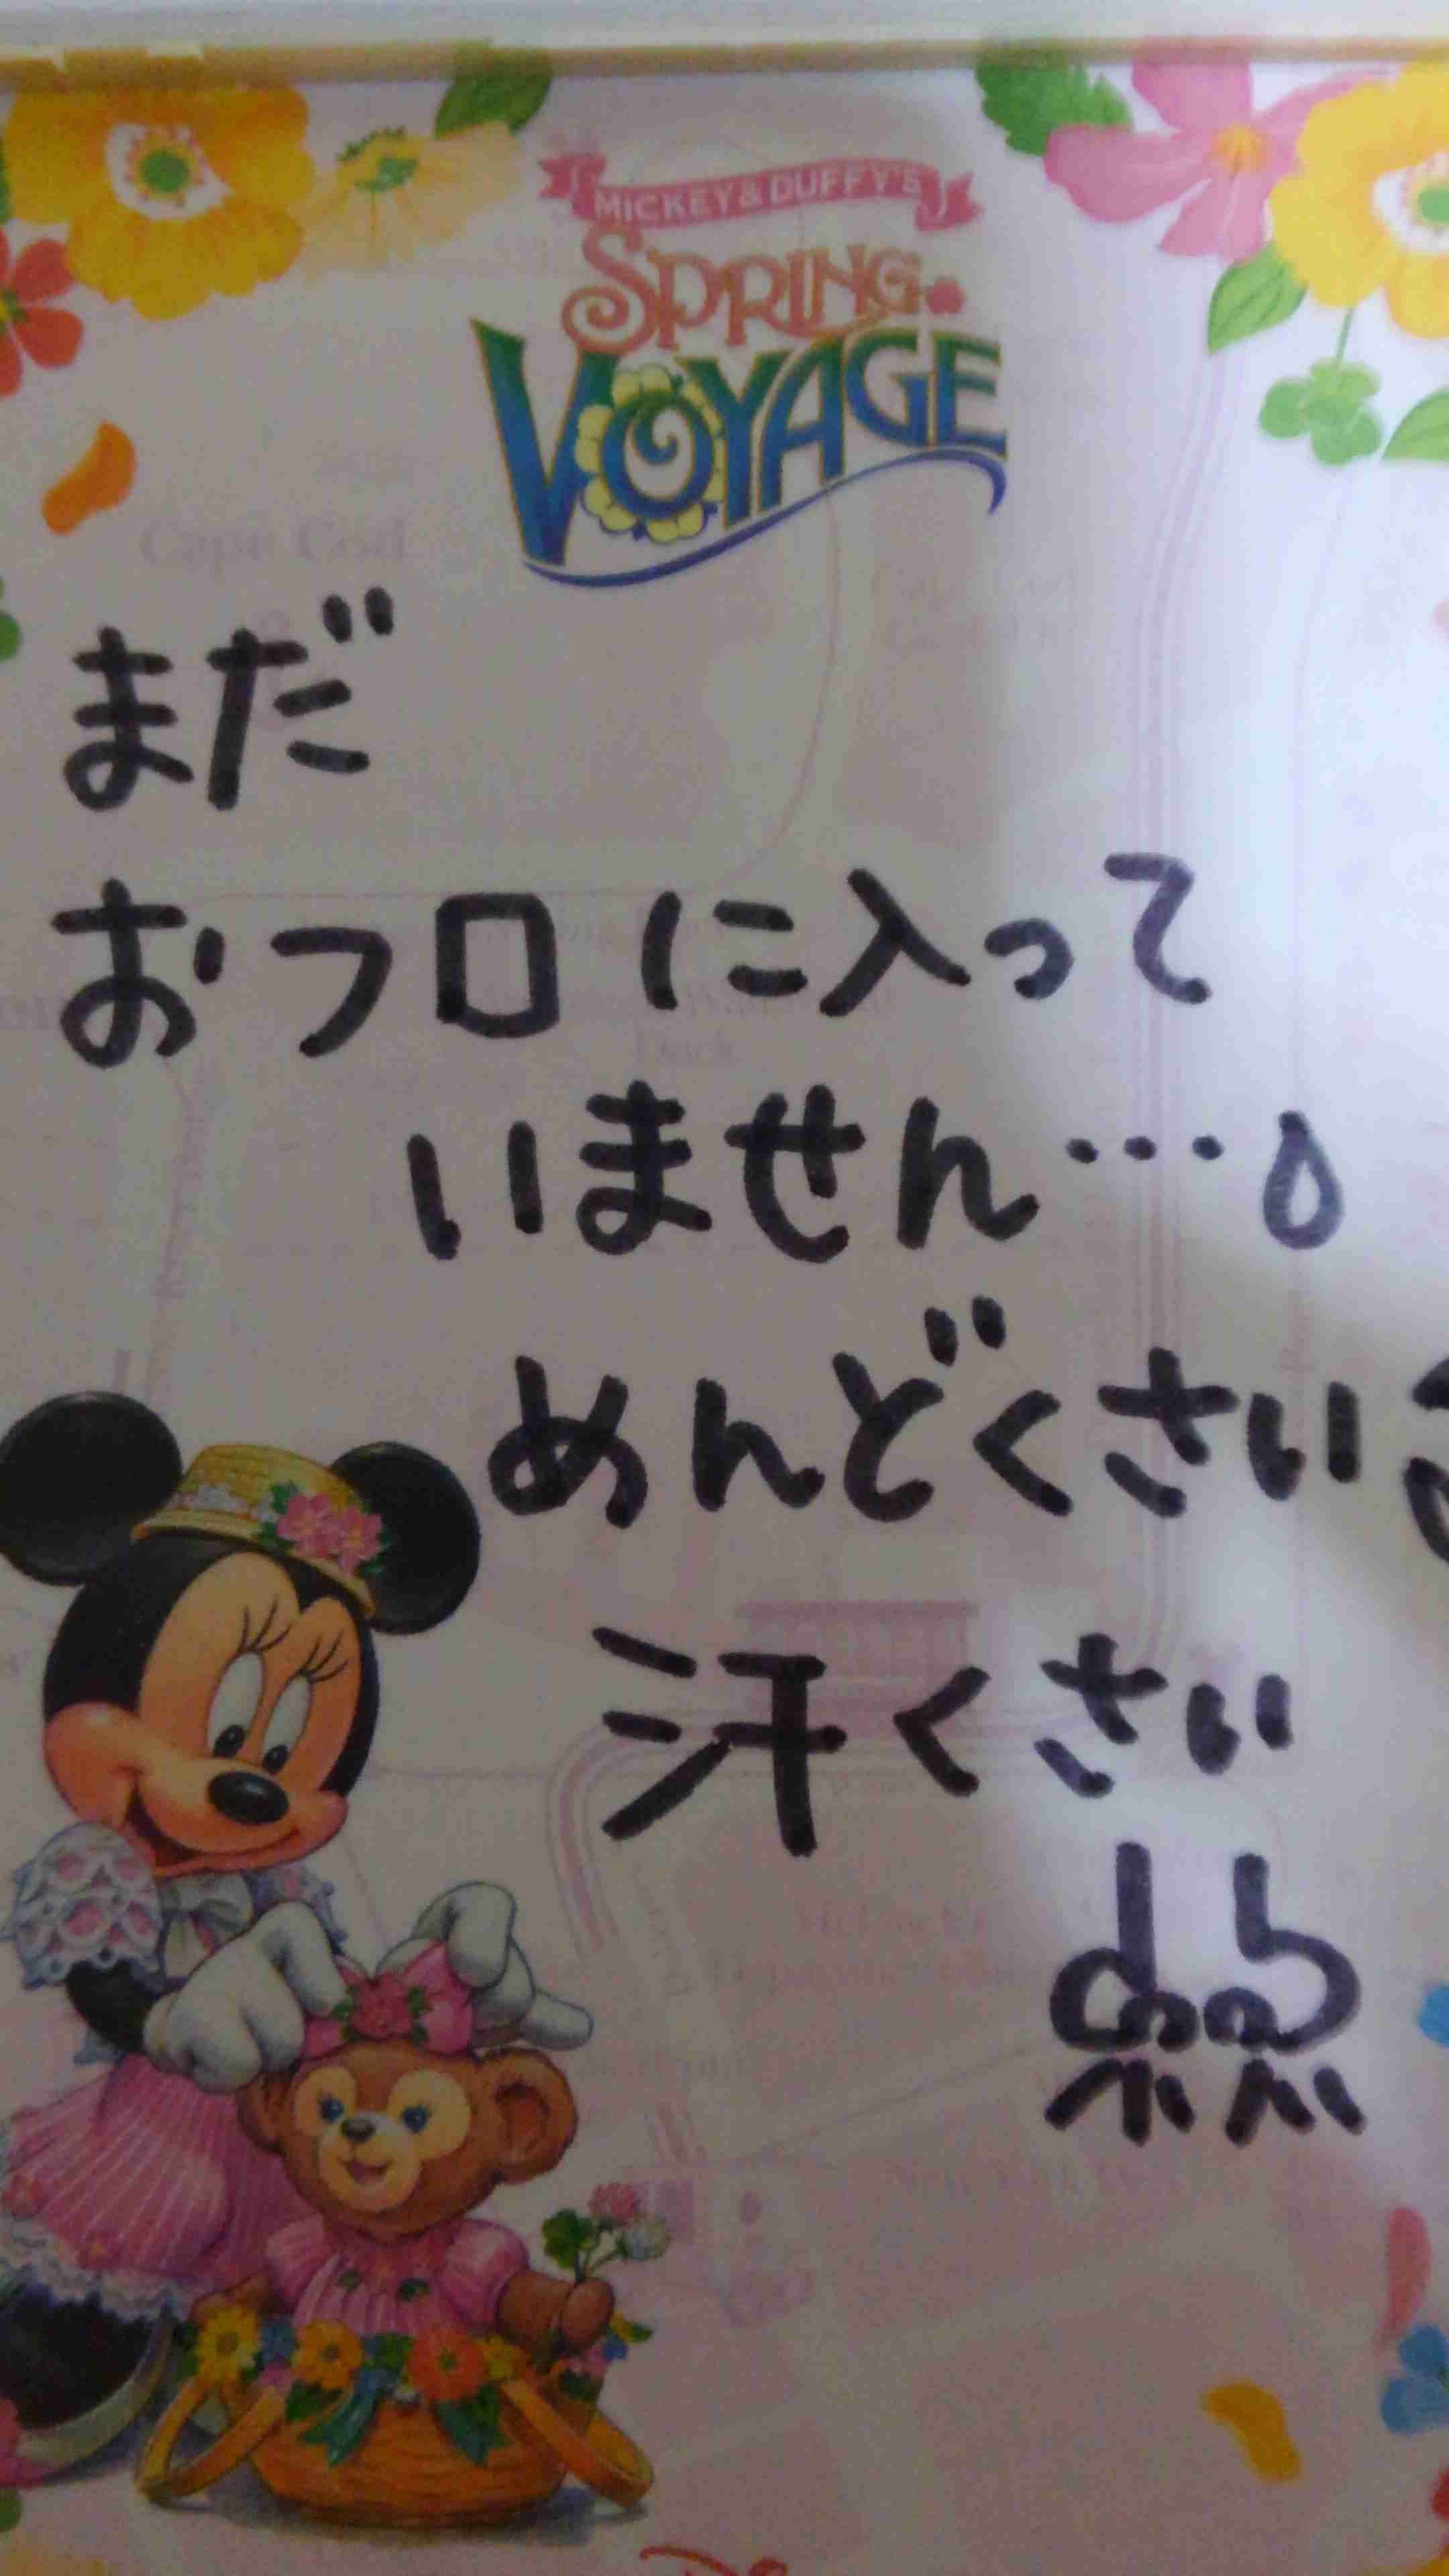 MICKEY & DUFFY'S
SPRING
VOYAGE
Cape Cod
まだ
おフロに入って
いません…。
めんどくさい
汗くさい